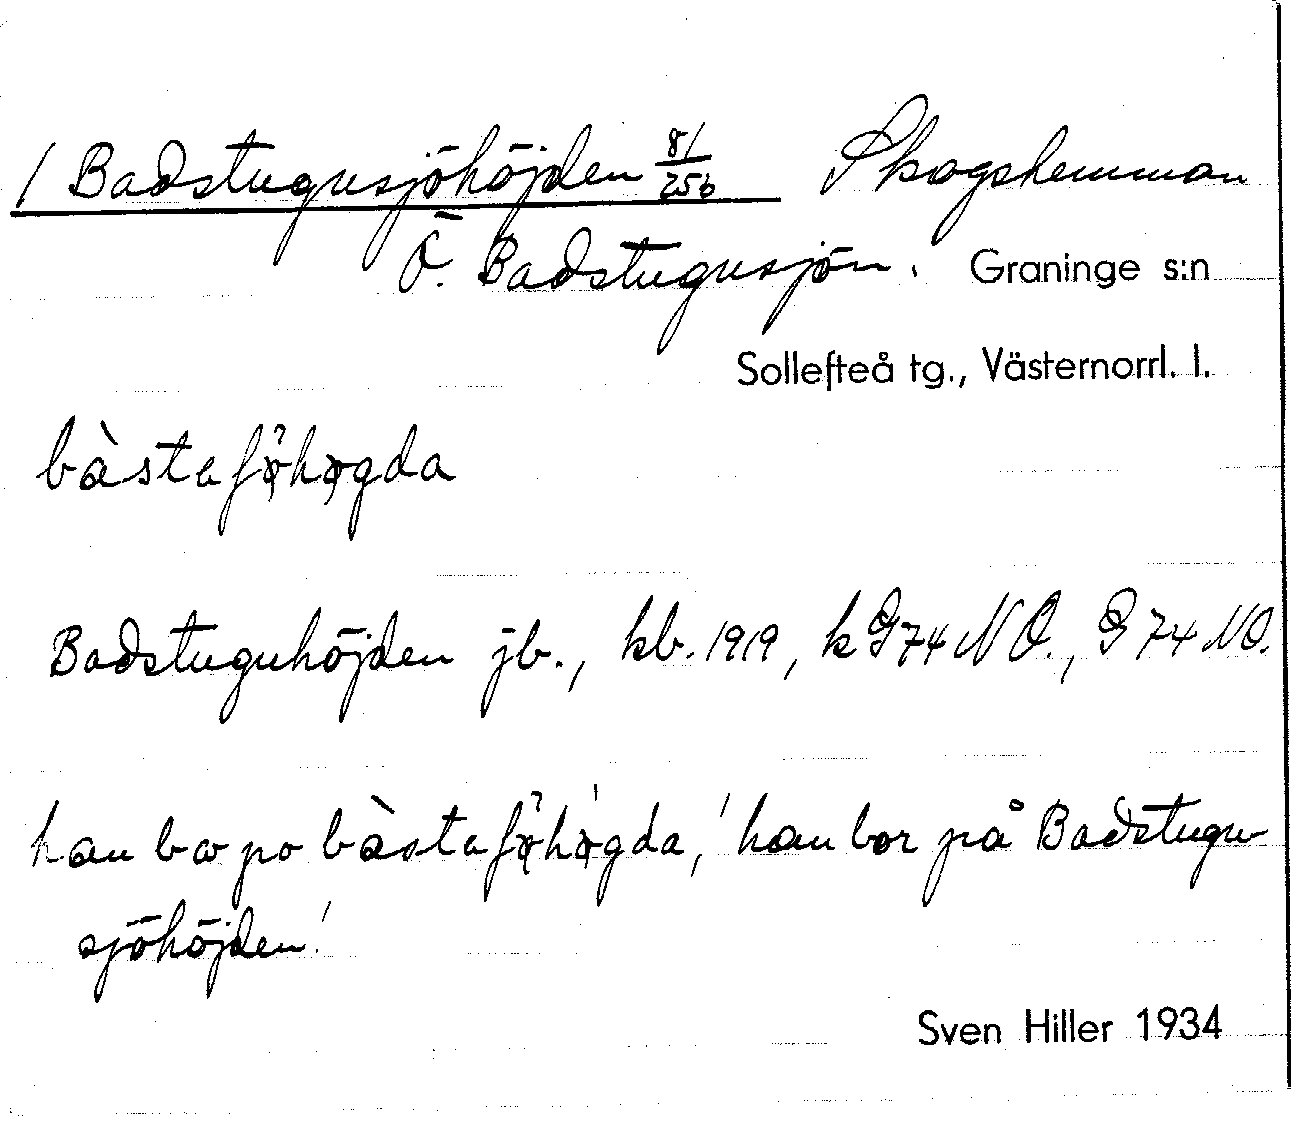 / Badstugusjöhöjden 81/256 Skogshemman
Ö. Badstugusjön. Graninge s:n
Sollefteå tg., Västernorrl. l.
bàstaföhøgda
Badstuguhöjden jb., kb. 1919, k G74 NO., G 74 NO.
han bor po bàstaföhøgda, 'han bor på Badstugu-
sjöhöjden.'
Sven Hiller 1934